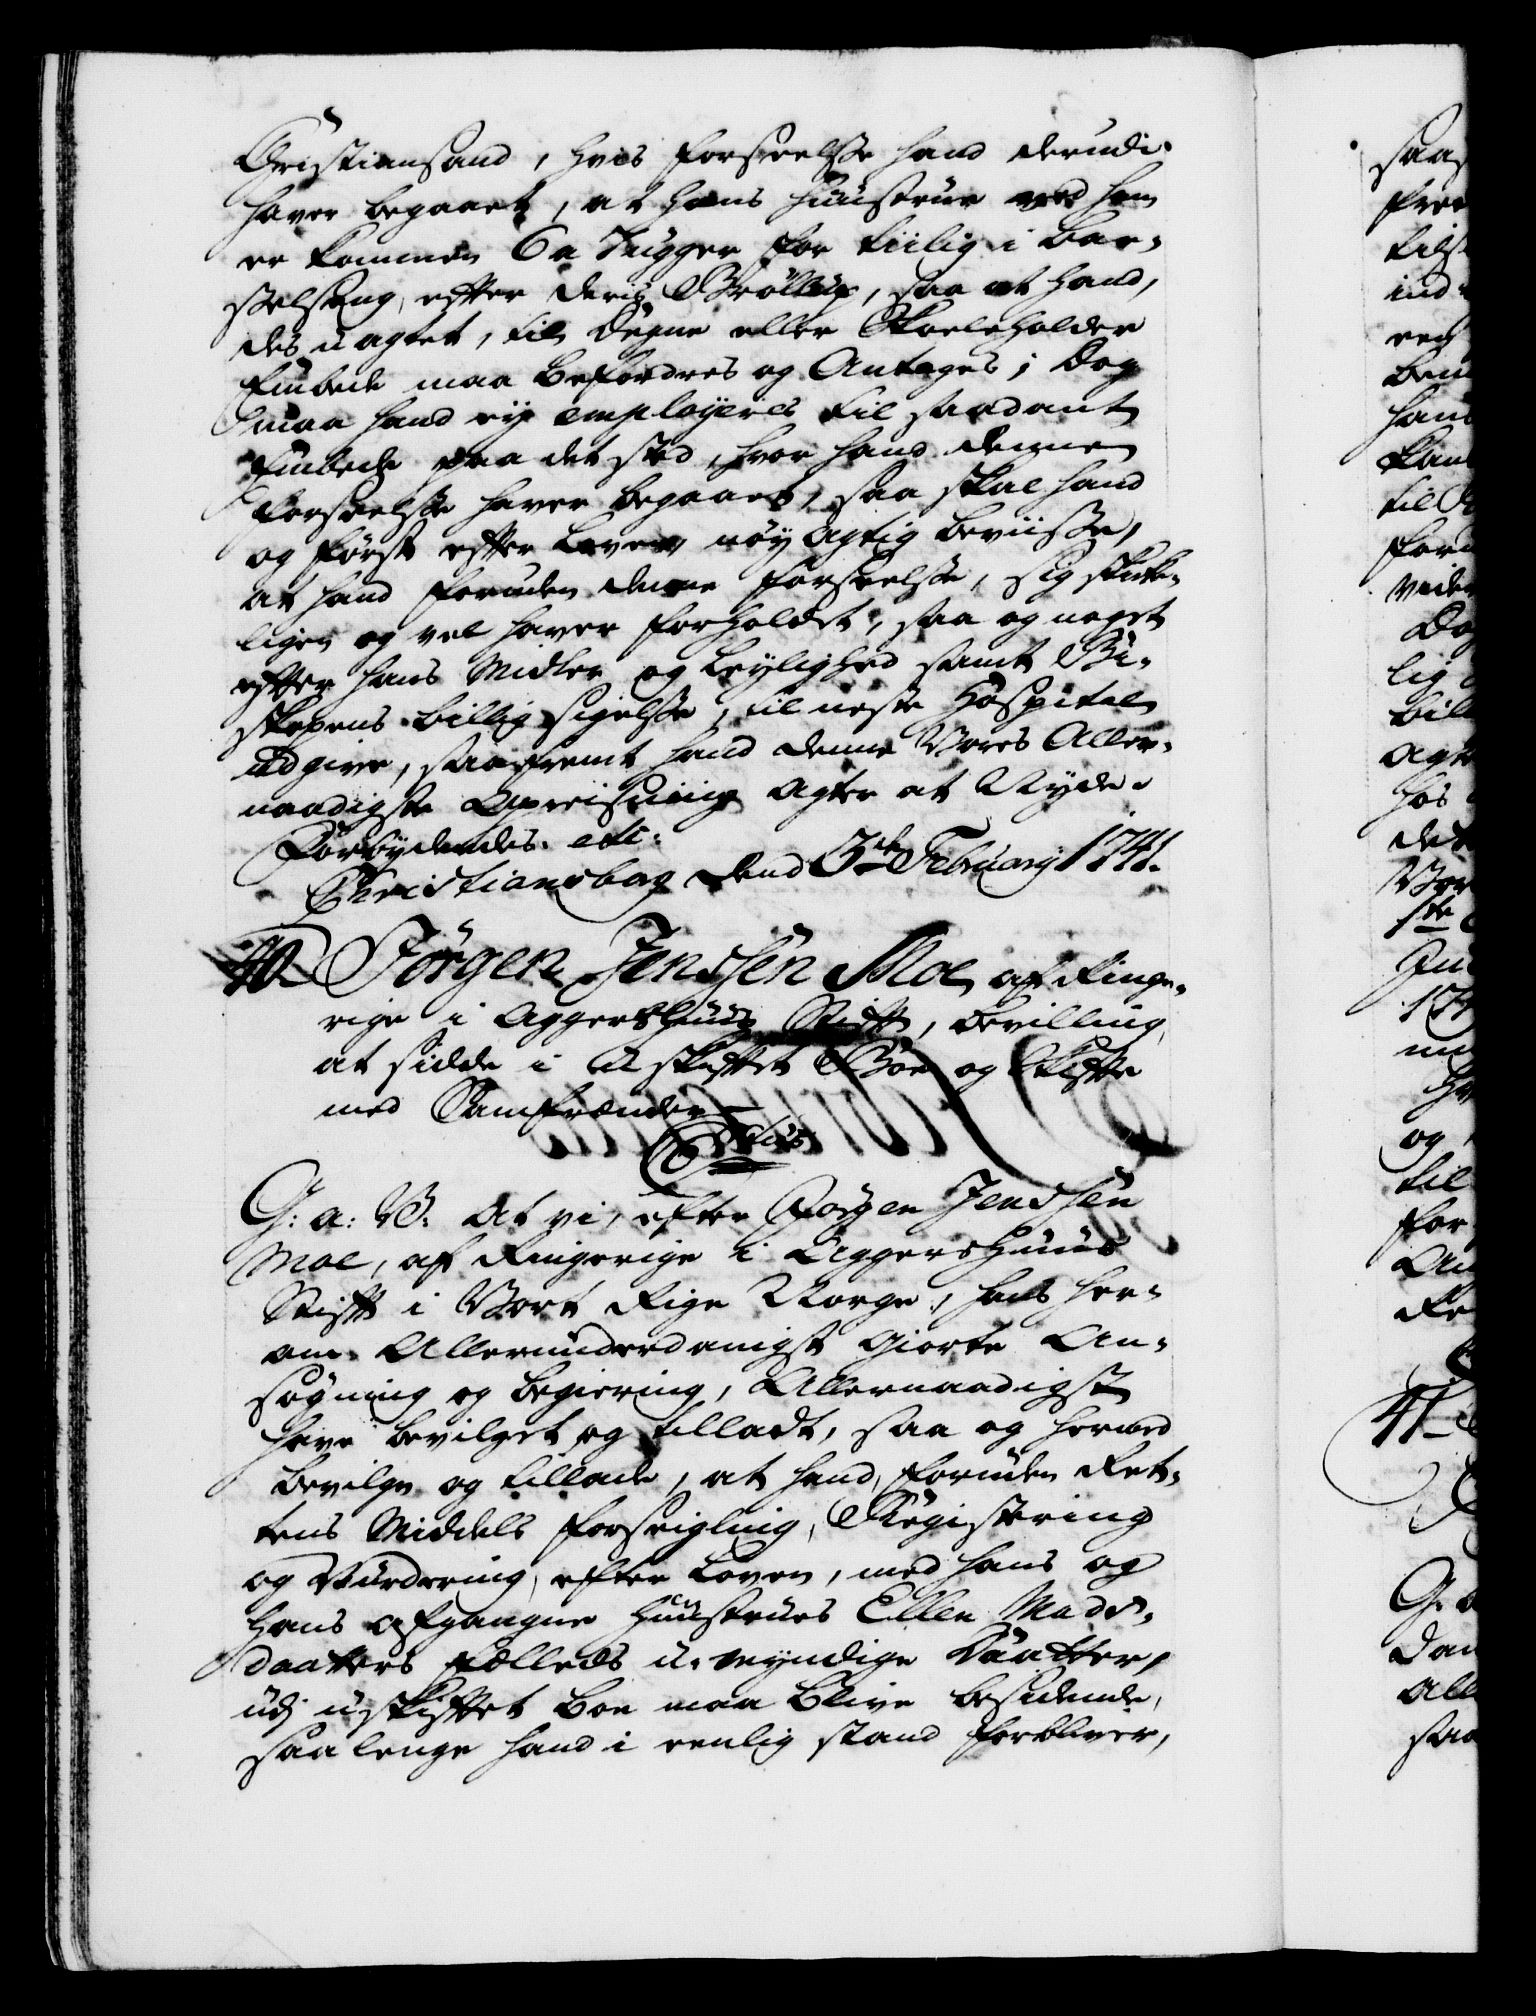 Christiansand, hvis forseelsse hand derudi-
haver begaaet, at hans huustrue ved ham
er kommen 6 a Uger for tiilig i Bar-
selseng, efter deris Brøllup, saa at hand,
des uagtet, til Degne eller Skoeleholder
Embede maa befordres og Antages; dog
maa hand ey employeres til saadant
Embede paa det sted, hvor hand denne
forseelsse haver begaaet, saa skal hand
og først efter Loven nøyagtig beviisse,
at hand foruden denne forseelsse, sig skike-
ligen og vel haver forholdt, saa og noget
efter hans Midler og Leylighed samt Bi-
skopens billig sigelsse, til neste Hospital
udgive, saafremt hand denne Vores Aller-
naadigste Opreisning agter at Nyde.
Forbydendes. etc:
Christiansborg dend 3de Februarij 1741.
40 Jørgen Jenssen Moe af Ringe-
rige i Aggershuus Stift, bevilling,
at sidde i Uskiftet Boe og Skifte
med Samfrender.
G: a: V: At vi, efter Jørgen Jenssen
Moe, af Ringerige i Aggershuus
Stift i Vort Rige Norge, hans her-
om Allerunderdanigst giorte An-
søgning og begiering, Allernaadigst
have bevilget og tilladt, saa og hermed
bevilge og tillade, at hand, foruden Ret-
tens Middels forseigling, Registering
og Vurdering, efter Loven, med hans og
hans afgangne Huustrues Ellen Mads-
daatters fælleds u-myndige Daatter,
udj uskiftet boe maa blive besidende,
saa lenge hand i eenlig stand forbliver,
41